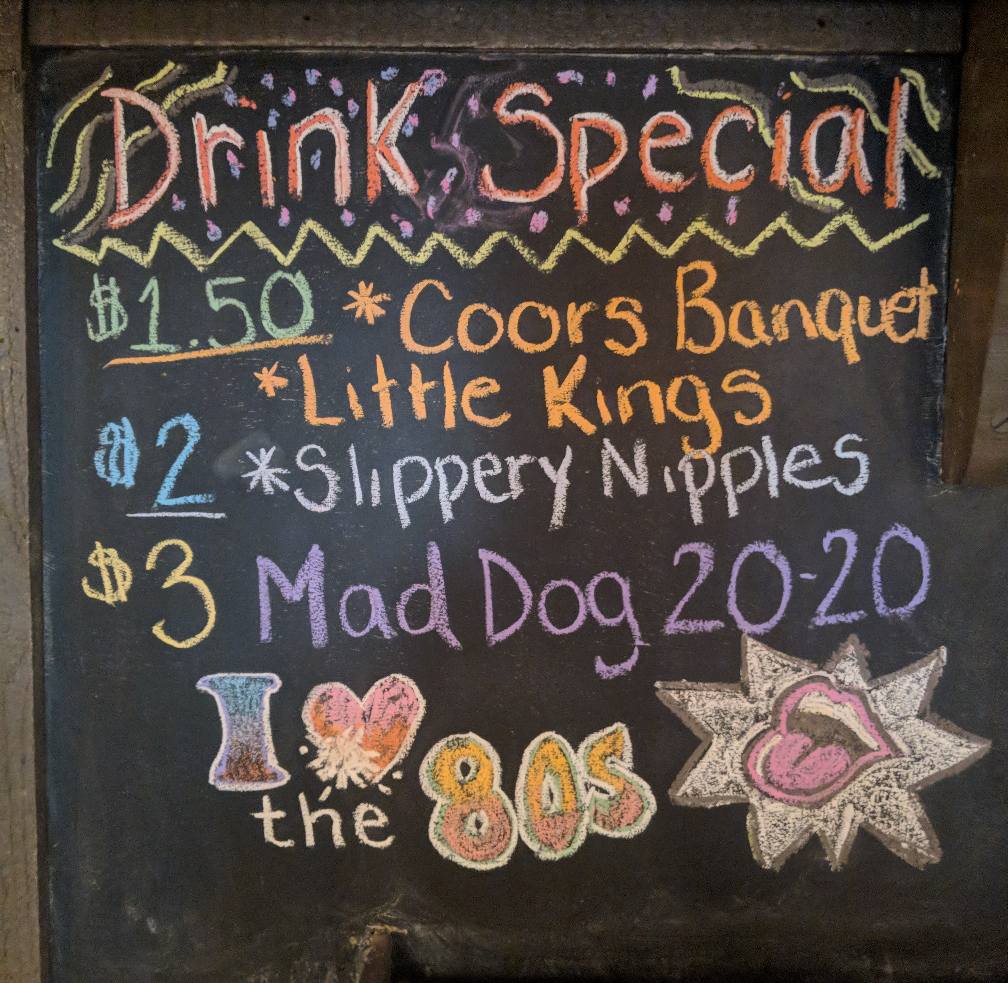 Drink Special
$1.50 *Coors Banquet
*Little Kings
$2 *Slippery Nipples
$3 Mad Dog 20-20
I
the 80s